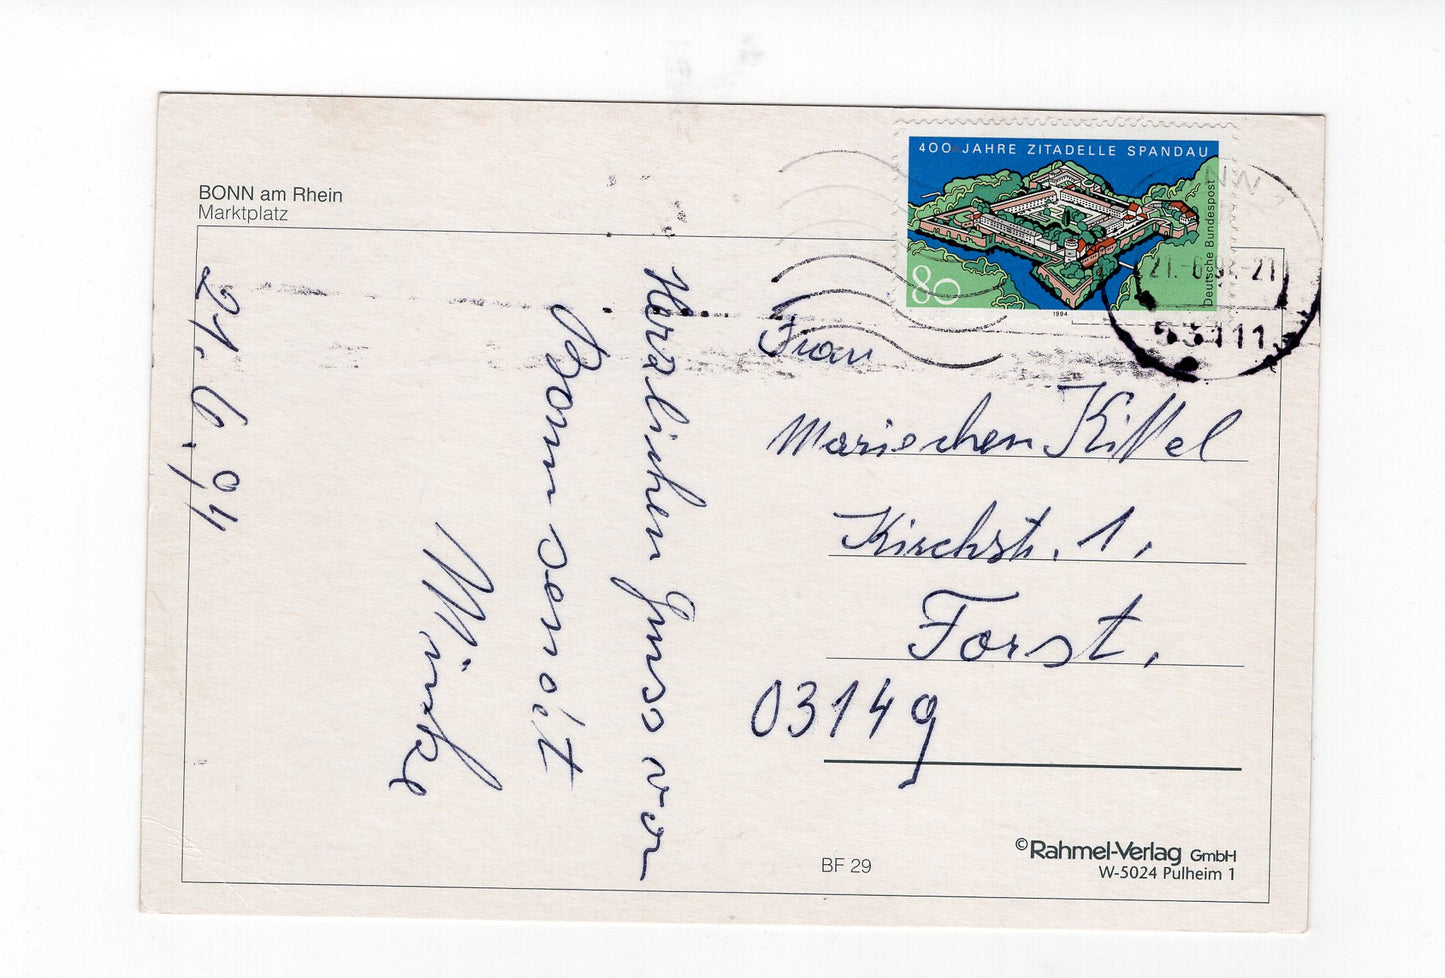 BONN am Rhein
Marktplatz
400 JAHRE ZITADELLE SPANDAU
Deutsche Bundespost
80
1994
21.-6.94-21
53111
21.6.94
Herzlichen Gruss von
Bonn sendet
Frau
Mariechen Kissel
Kirchstr. 1,
Forst,
03149
BF 29
©Rahmel-Verlag GmbH
W-5024 Pulheim 1